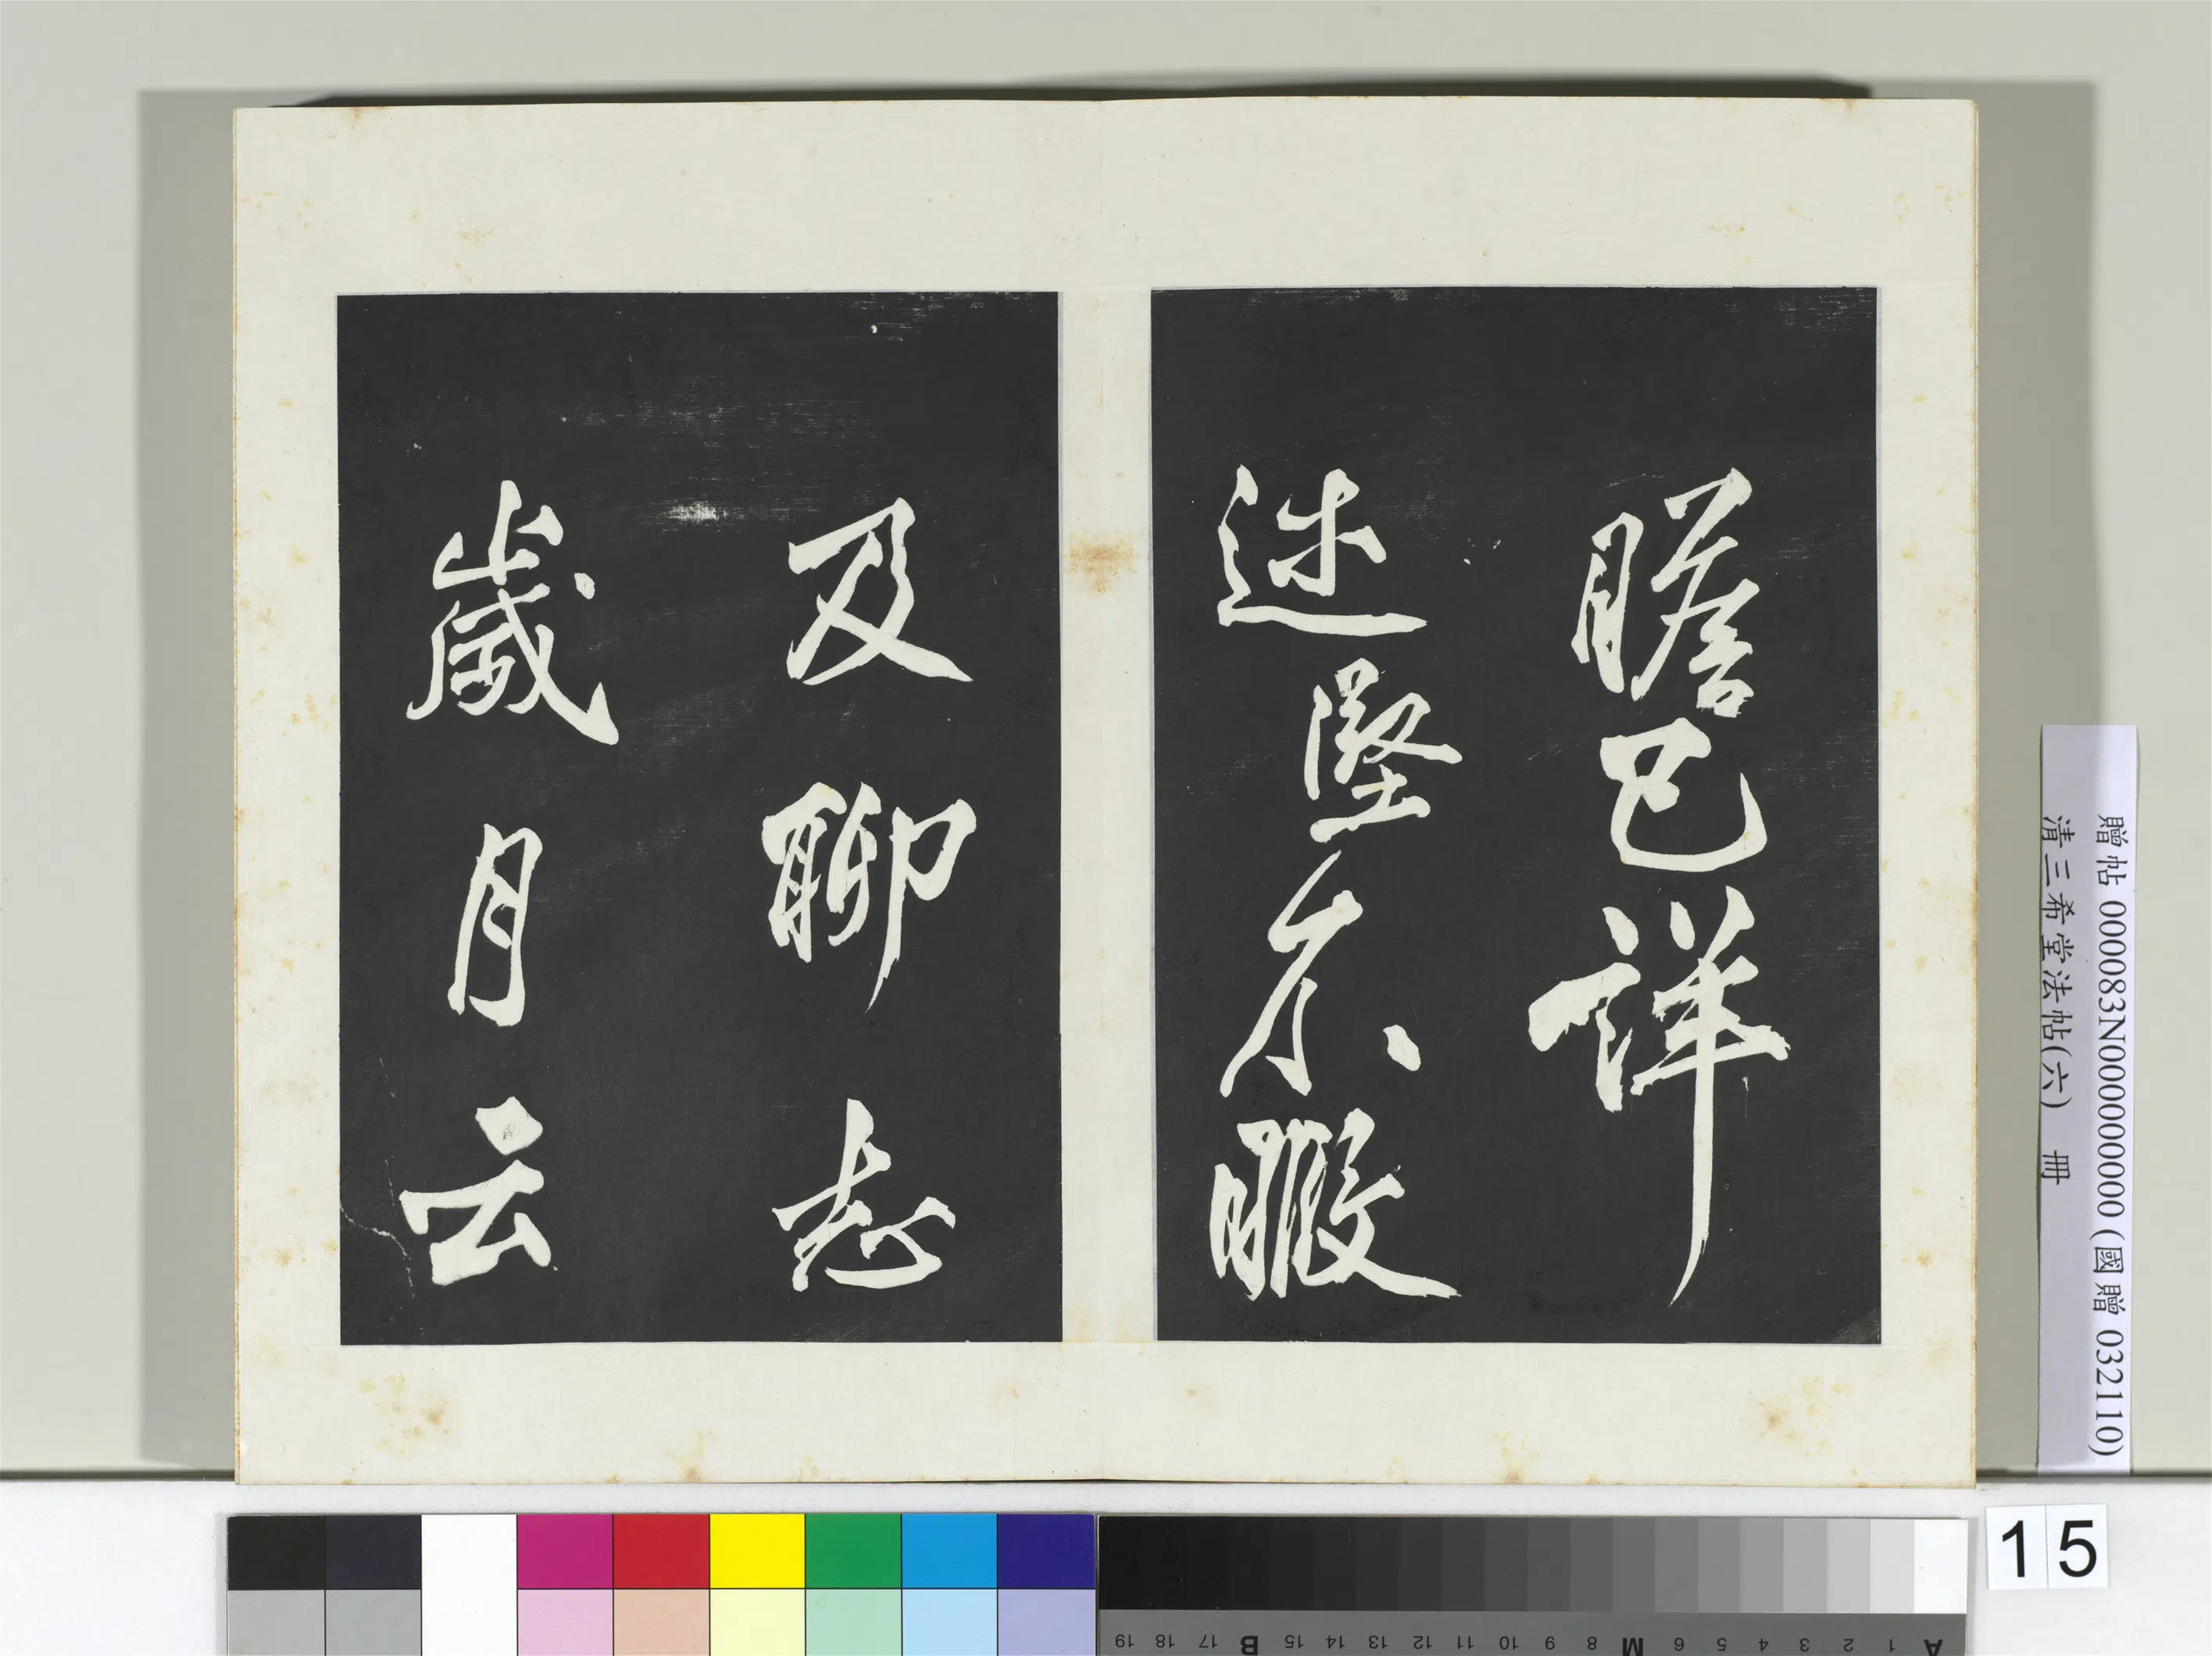 瞻已詳
述堅不暇
及聊志
歲月云
贈帖 000083N000000000 (國贈 032110)
清三希堂法帖(六) 冊
15
A 1 2 3 4 5 6 M 8 9 10 11 12 13 14 15 B 17 18 19